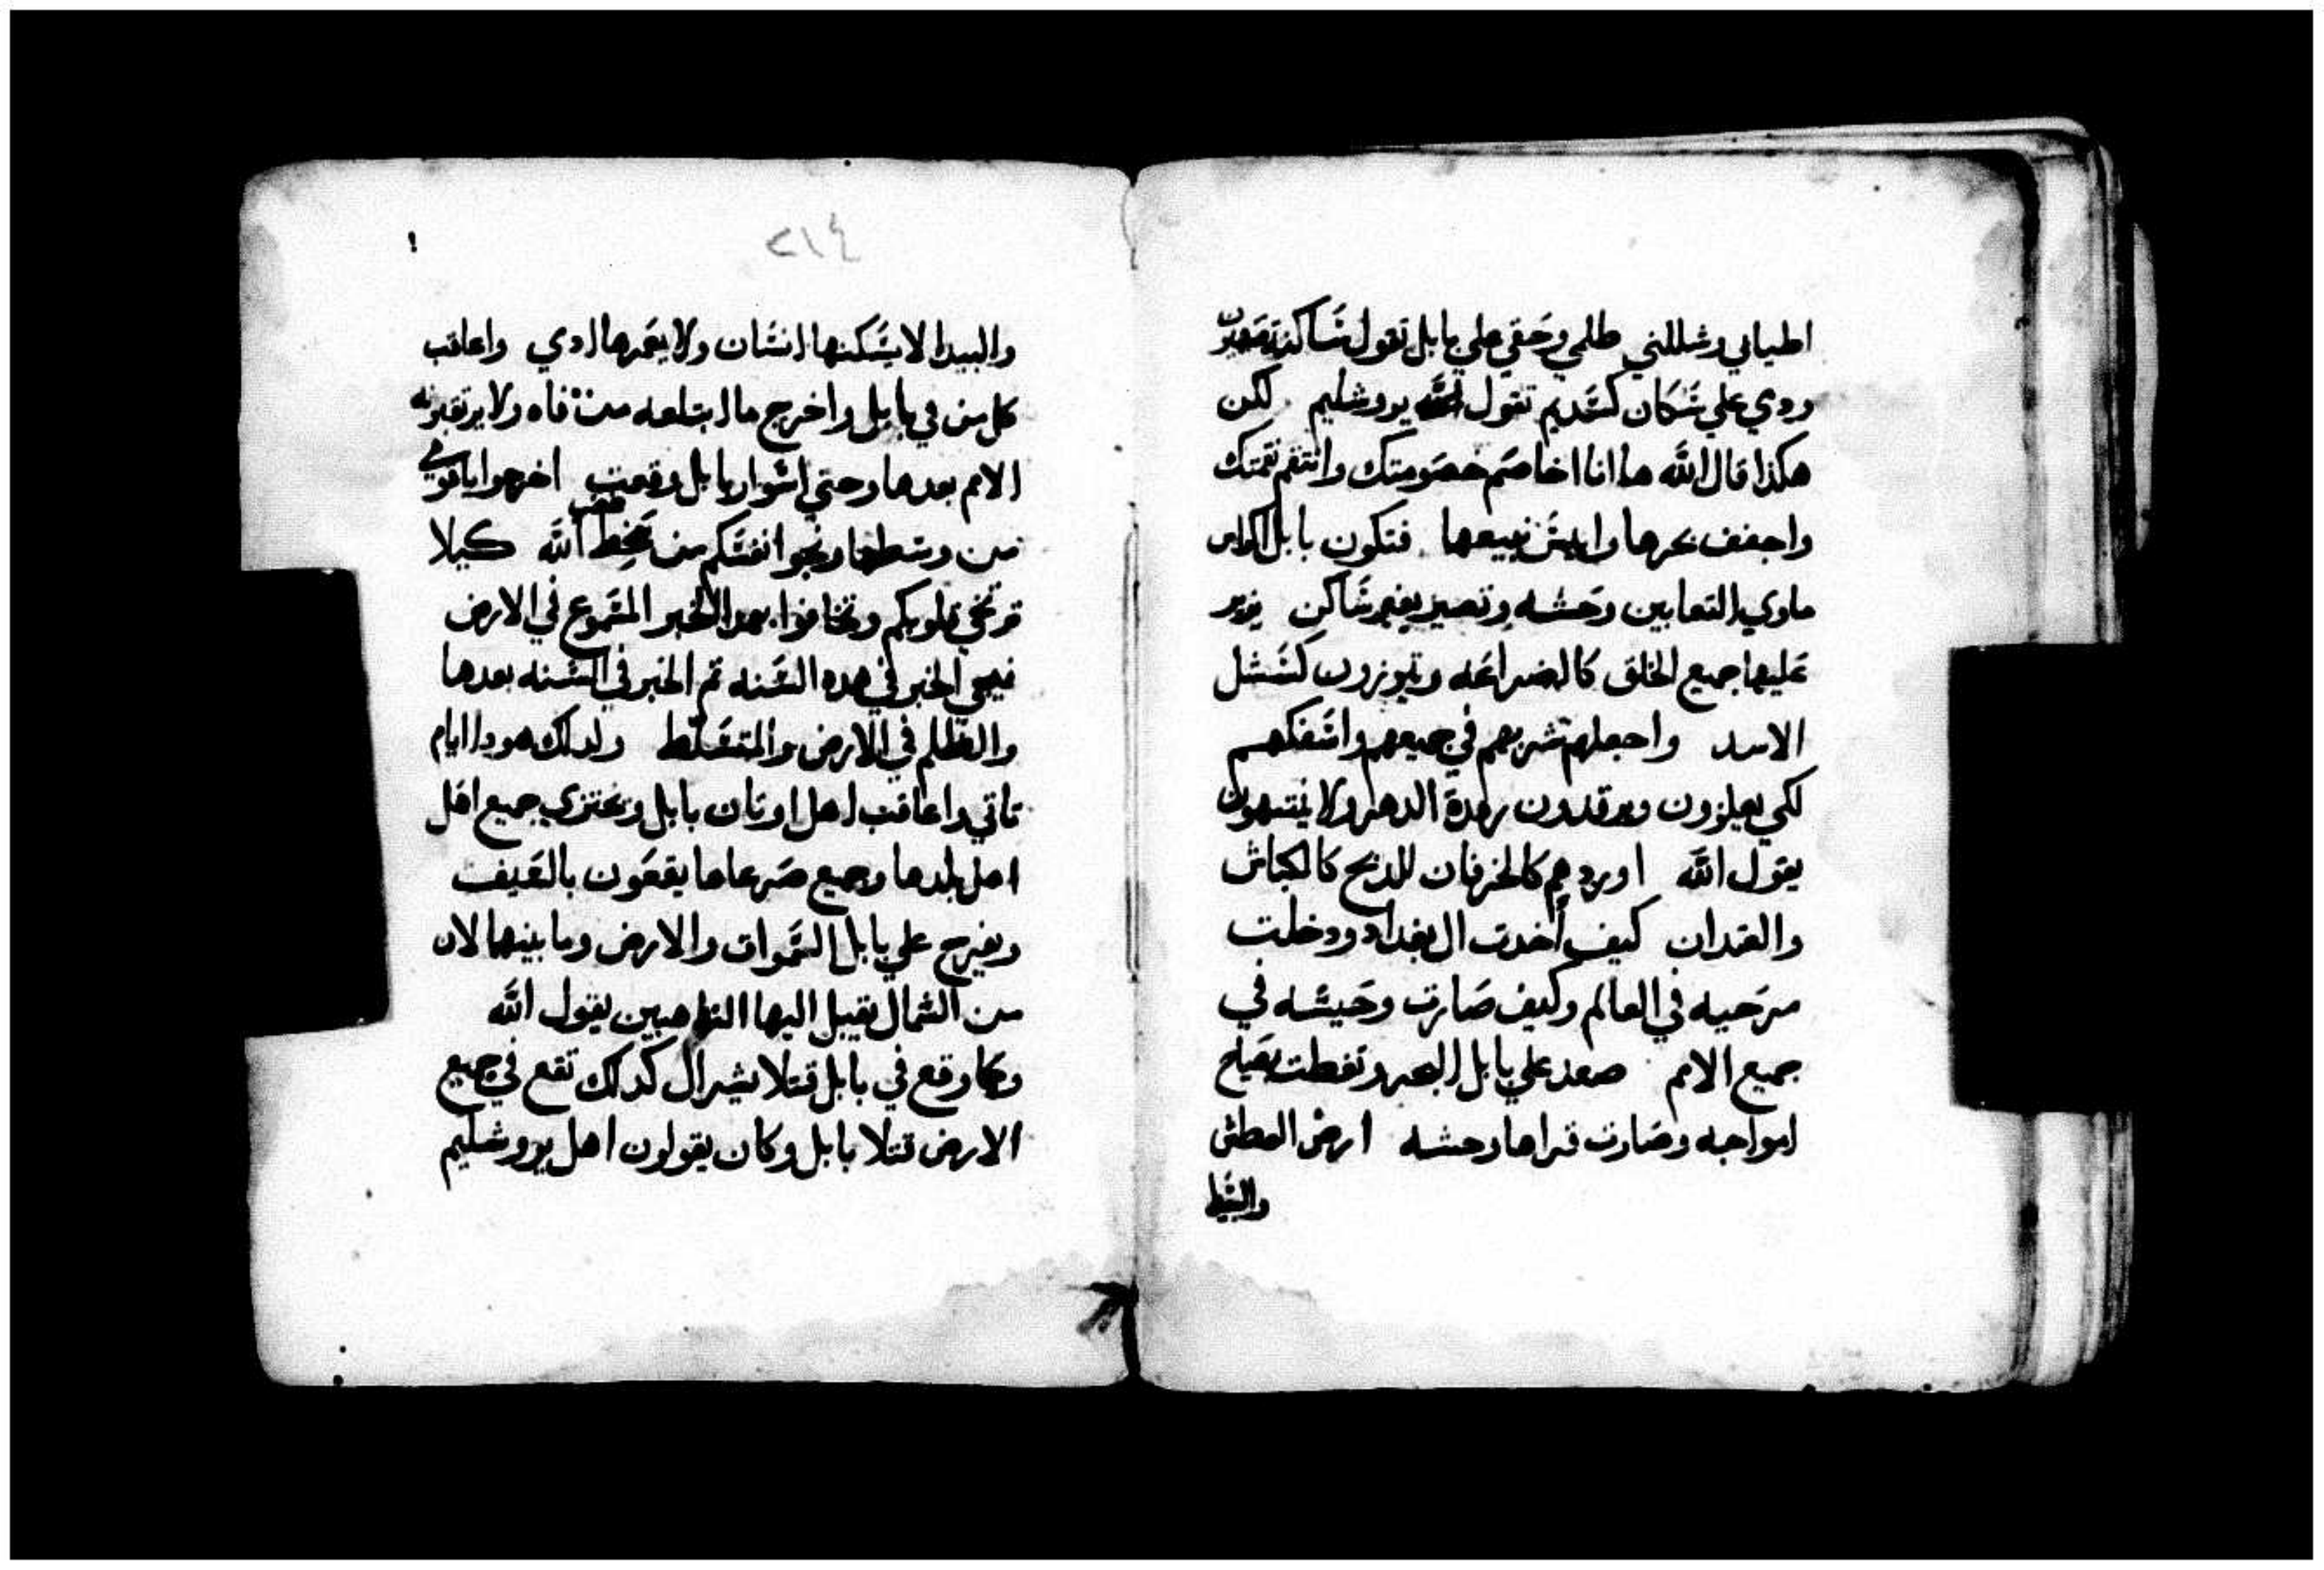 اطيابي وشللني ظلمي وحقي علي بابل تقول ساكنة
ودمي علي سكان كسديم تقول يروشليم لكن
هكذا قال الله ها انا اخاصم خصومتك وانتقم نقمتك
واجفف بحرها وايبس نبيعها فتكون بابل
ماوي التعابين وحشه وتصير بغير ساكن يزير
عليها جميع الخلق كالضراغه ويزورون كشبل
الاسد واجعلهم تشربهم في جميعهم واسفكهم
لكي يعلزون ويرقدون رقدة الدهر ولا ينتبهون
يقول الله اوردهم كالخرفان للدبح كالكباش
والعتدان كيف اخدت ال بغداد ودخلت
مرحيه في العالم وكيف صارت وحيشه في
جميع الامم صعد علي بابل البحر وتغطت بصياح
امواجه وصارت قراها وحشه ارض العطش
والبيدا
٢١٤
والبيدا لا يسكنها انسان ولا يعبرها ادمي واعاقب
كل من في بابل واخرج ما ابتلعه من فاه ولا يرتقبونه
الامم بعدها وحتي اسوار بابل وقعت اخرجوا ياقومي
من وسطها ونجوا انفسكم من سخط الله كيلا
ترتخي قلوبكم وتخافوا بهدا الخبر المسموع في الارض
فيجي الخبر في هده السنه تم الخبر في السنه بعدها
والظلم في الارض والمتسلط ولدلك هودا ايام
تاتي واعاقب اهل اوتان بابل وتختزي جميع اهل
اهل بلدها وجميع صرعاها يقعون بالسيف
ويفرح علي بابل السموات والارض وما بينهما لان
من الشمال يقبل اليها الناهبين يقول الله
وكما وقع في بابل قتلا يشرال كدلك تقع في جميع
الارض قتلا بابل وكان يقولون اهل يروشليم